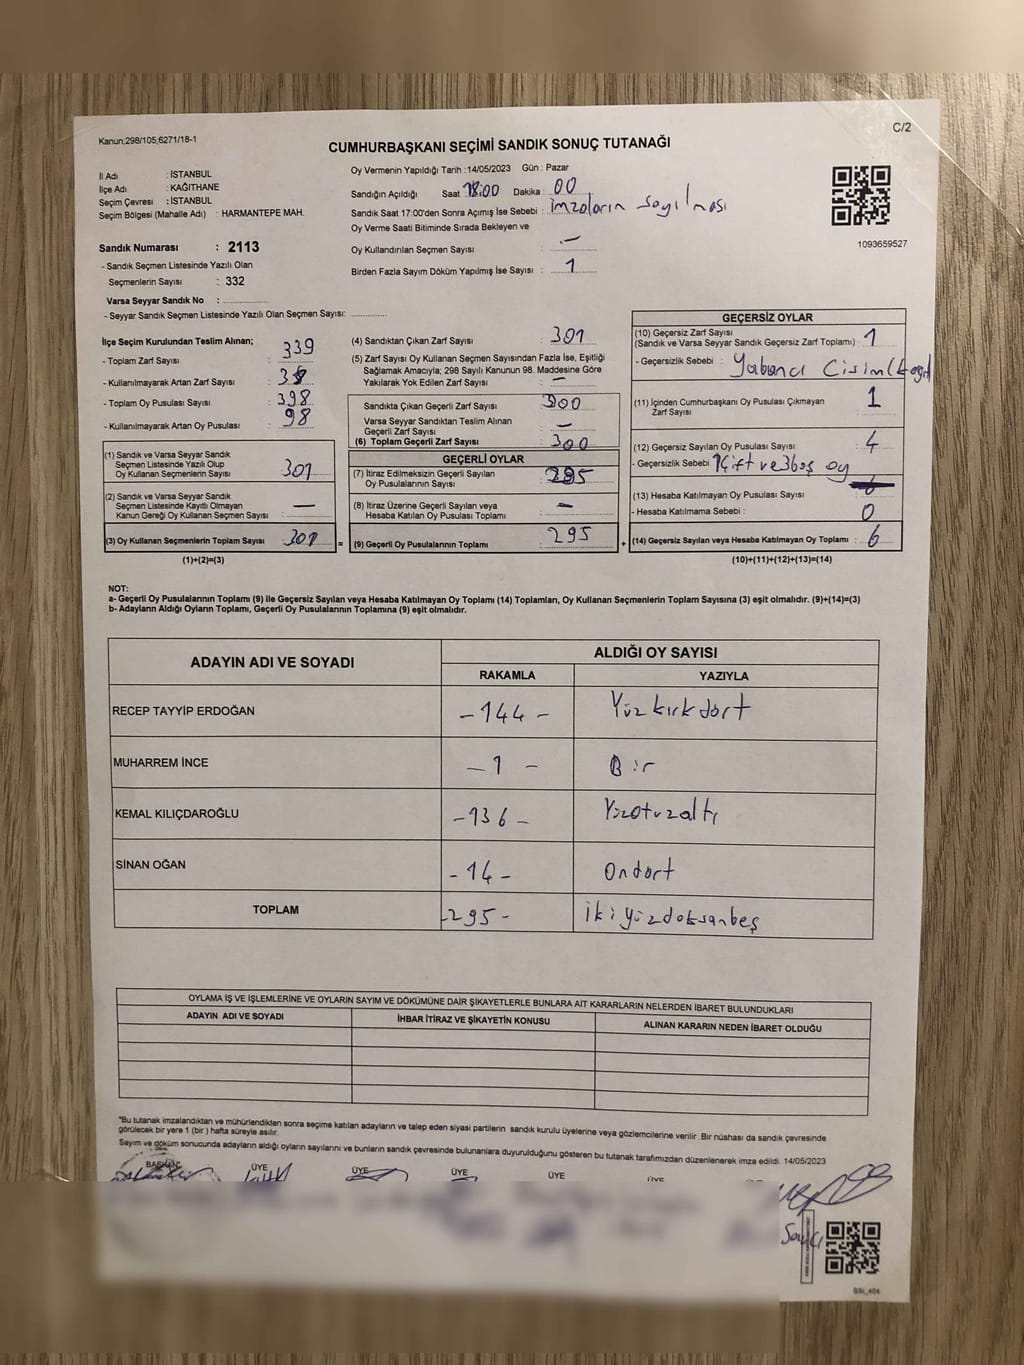 C/2
Kanun;298/105;6271/18-1
CUMHURBAŞKANI SEÇİMİ SANDIK SONUÇ TUTANAĞI
İl Adı : İSTANBUL
İlçe Adı : KAĞITHANE
Seçim Çevresi : İSTANBUL
Seçim Bölgesi (Mahalle Adı) : HARMANTEPE MAH.
Sandık Numarası : 2113
- Sandık Seçmen Listesinde Yazılı Olan
Seçmenlerin Sayısı : 332
Varsa Seyyar Sandık No : ..............
- Seyyar Sandık Seçmen Listesinde Yazılı Olan Seçmen Sayısı: ............
Oy Vermenin Yapıldığı Tarih :14/05/2023 Gün : Pazar
Sandığın Açıldığı Saat 18:00 Dakika : 00
Sandık Saat 17:00'den Sonra Açımış İse Sebebi : imzaların sayılması
Oy Verme Saati Bitiminde Sırada Bekleyen ve
Oy Kullandırılan Seçmen Sayısı : —
Birden Fazla Sayım Döküm Yapılmış İse Sayısı : 1
1093659527
İlçe Seçim Kurulundan Teslim Alınan;
- Toplam Zarf Sayısı : 339
- Kullanılmayarak Artan Zarf Sayısı :
- Toplam Oy Pusulası Sayısı : 398
- Kullanılmayarak Artan Oy Pusulası : 98
(1) Sandık ve Varsa Seyyar Sandık
Seçmen Listesinde Yazılı Olup
Oy Kullanan Seçmenlerin Sayısı : 301
(2) Sandık ve Varsa Seyyar Sandık
Seçmen Listesinde Kayıtlı Olmayan
Kanun Gereği Oy Kullanan Seçmen Sayısı : —
(3) Oy Kullanan Seçmenlerin Toplam Sayısı : 301
(1)+(2)=(3)
=
(4) Sandıktan Çıkan Zarf Sayısı : 301
(5) Zarf Sayısı Oy Kullanan Seçmen Sayısından Fazla İse, Eşitliği
Sağlamak Amacıyla; 298 Sayılı Kanunun 98. Maddesine Göre
Yakılarak Yok Edilen Zarf Sayısı : —
Sandıkta Çıkan Geçerli Zarf Sayısı : 300
Varsa Seyyar Sandıktan Teslim Alınan
Geçerli Zarf Sayısı : —
(6) Toplam Geçerli Zarf Sayısı : 300
GEÇERLİ OYLAR
(7) İtiraz Edilmeksizin Geçerli Sayılan
Oy Pusulalarının Sayısı : 295
(8) İtiraz Üzerine Geçerli Sayılan veya
Hesaba Katılan Oy Pusulası Toplamı : —
(9) Geçerli Oy Pusulalarının Toplamı : 295
+
GEÇERSİZ OYLAR
(10) Geçersiz Zarf Sayısı
(Sandık ve Varsa Seyyar Sandık Geçersiz Zarf Toplamı) : 1
- Geçersizlik Sebebi : Yabancı Cisim(kağıt
(11) İçinden Cumhurbaşkanı Oy Pusulası Çıkmayan
Zarf Sayısı : 1
(12) Geçersiz Sayılan Oy Pusulası Sayısı : 4
- Geçersizlik Sebebi : 1Çift ve3boş oy
(13) Hesaba Katılmayan Oy Pusulası Sayısı :
- Hesaba Katılmama Sebebi : 0
(14) Geçersiz Sayılan veya Hesaba Katılmayan Oy Toplamı : 6
(10)+(11)+(12)+(13)=(14)
NOT:
a- Geçerli Oy Pusulalarının Toplamı (9) ile Geçersiz Sayılan veya Hesaba Katılmayan Oy Toplamı (14) Toplamları, Oy Kullanan Seçmenlerin Toplam Sayısına (3) eşit olmalıdır. (9)+(14)=(3)
b- Adayların Aldığı Oyların Toplamı, Geçerli Oy Pusulalarının Toplamına (9) eşit olmalıdır.
ADAYIN ADI VE SOYADI ALDIĞI OY SAYISI
RAKAMLA YAZIYLA
RECEP TAYYİP ERDOĞAN -144- Yüzkırkdört
MUHARREM İNCE -1- Bir
KEMAL KILIÇDAROĞLU -136- Yüzotuzaltı
SİNAN OĞAN -14- Ondört
TOPLAM -295- İkiyüzdoksanbeş
OYLAMA İŞ VE İŞLEMLERİNE VE OYLARIN SAYIM VE DÖKÜMÜNE DAİR ŞİKAYETLERLE BUNLARA AİT KARARLARIN NELERDEN İBARET BULUNDUKLARI
ADAYIN ADI VE SOYADI İHBAR İTİRAZ VE ŞİKAYETİN KONUSU ALINAN KARARIN NEDEN İBARET OLDUĞU
*Bu tutanak imzalandıktan ve mühürlendikten sonra seçime katılan adayların ve talep eden siyasi partilerin sandık kurulu üyelerine veya gözlemcilerine verilir. Bir nüshası da sandık çevresinde
görülecek bir yere 1 (bir ) hafta süreyle asılır.
Sayım ve döküm sonucunda adayların aldığı oyların sayılarını ve bunların sandık çevresinde bulunanlara duyurulduğunu gösteren bu tutanak tarafımızdan düzenlenerek imza edildi. 14/05/2023
BAŞKAN ÜYE ÜYE ÜYE ÜYE ÜYE